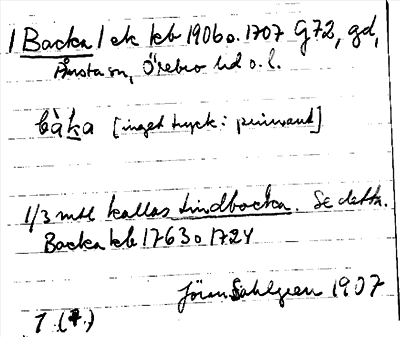 / Backa / ek kb 1906 o. 1707 G72, gd,
Ånsta sn, Örebro hd o. l.
bàka [inget tryck:
1/3 mtl kallas Lindbacka. Se detta.
Backa kb 1763 o 1724
Jöran Sahlgren 1907
1 (4.)